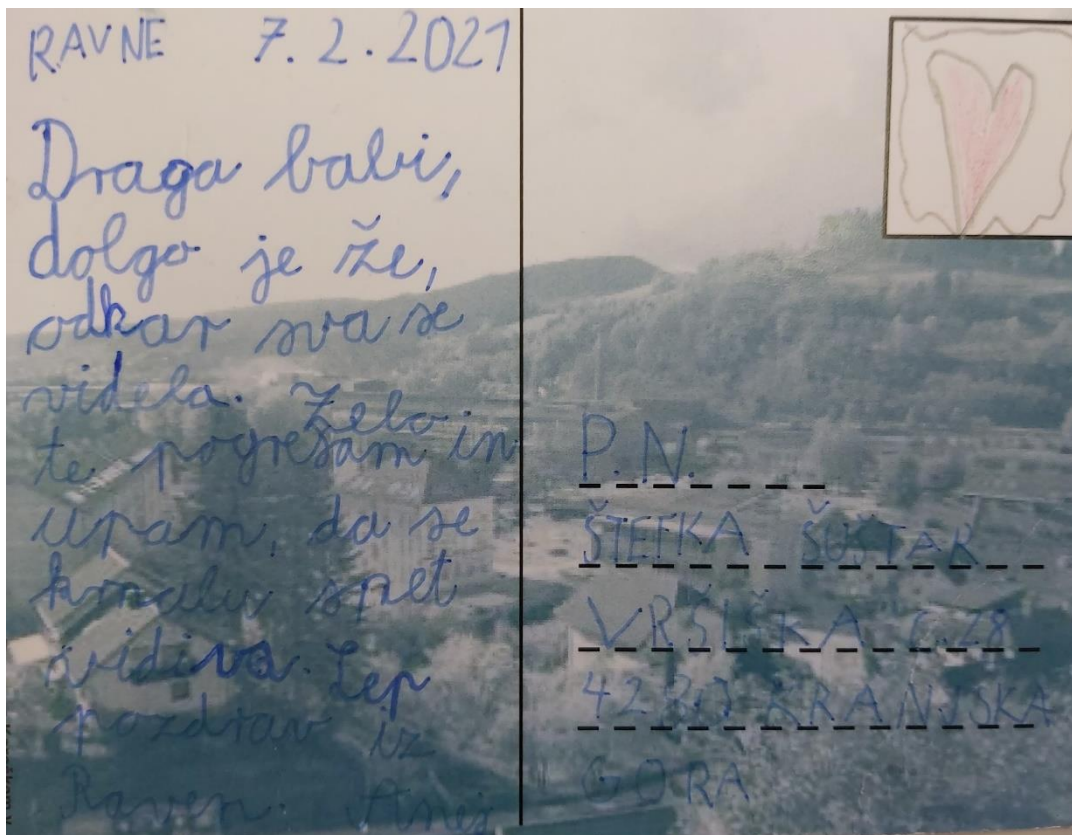 RAVNE 7.2.2021
Draga babi,
dolgo je že,
odkar sva se
videla. Zelo
te pogrešam in
upam, da se
kmalu spet
vidiva. Lep
pozdrav iz
Raven.
P.N.
ŠTEFKA ŠUŠTAR
VRŠIŠKA C. 28
KRANJSKA
GORA